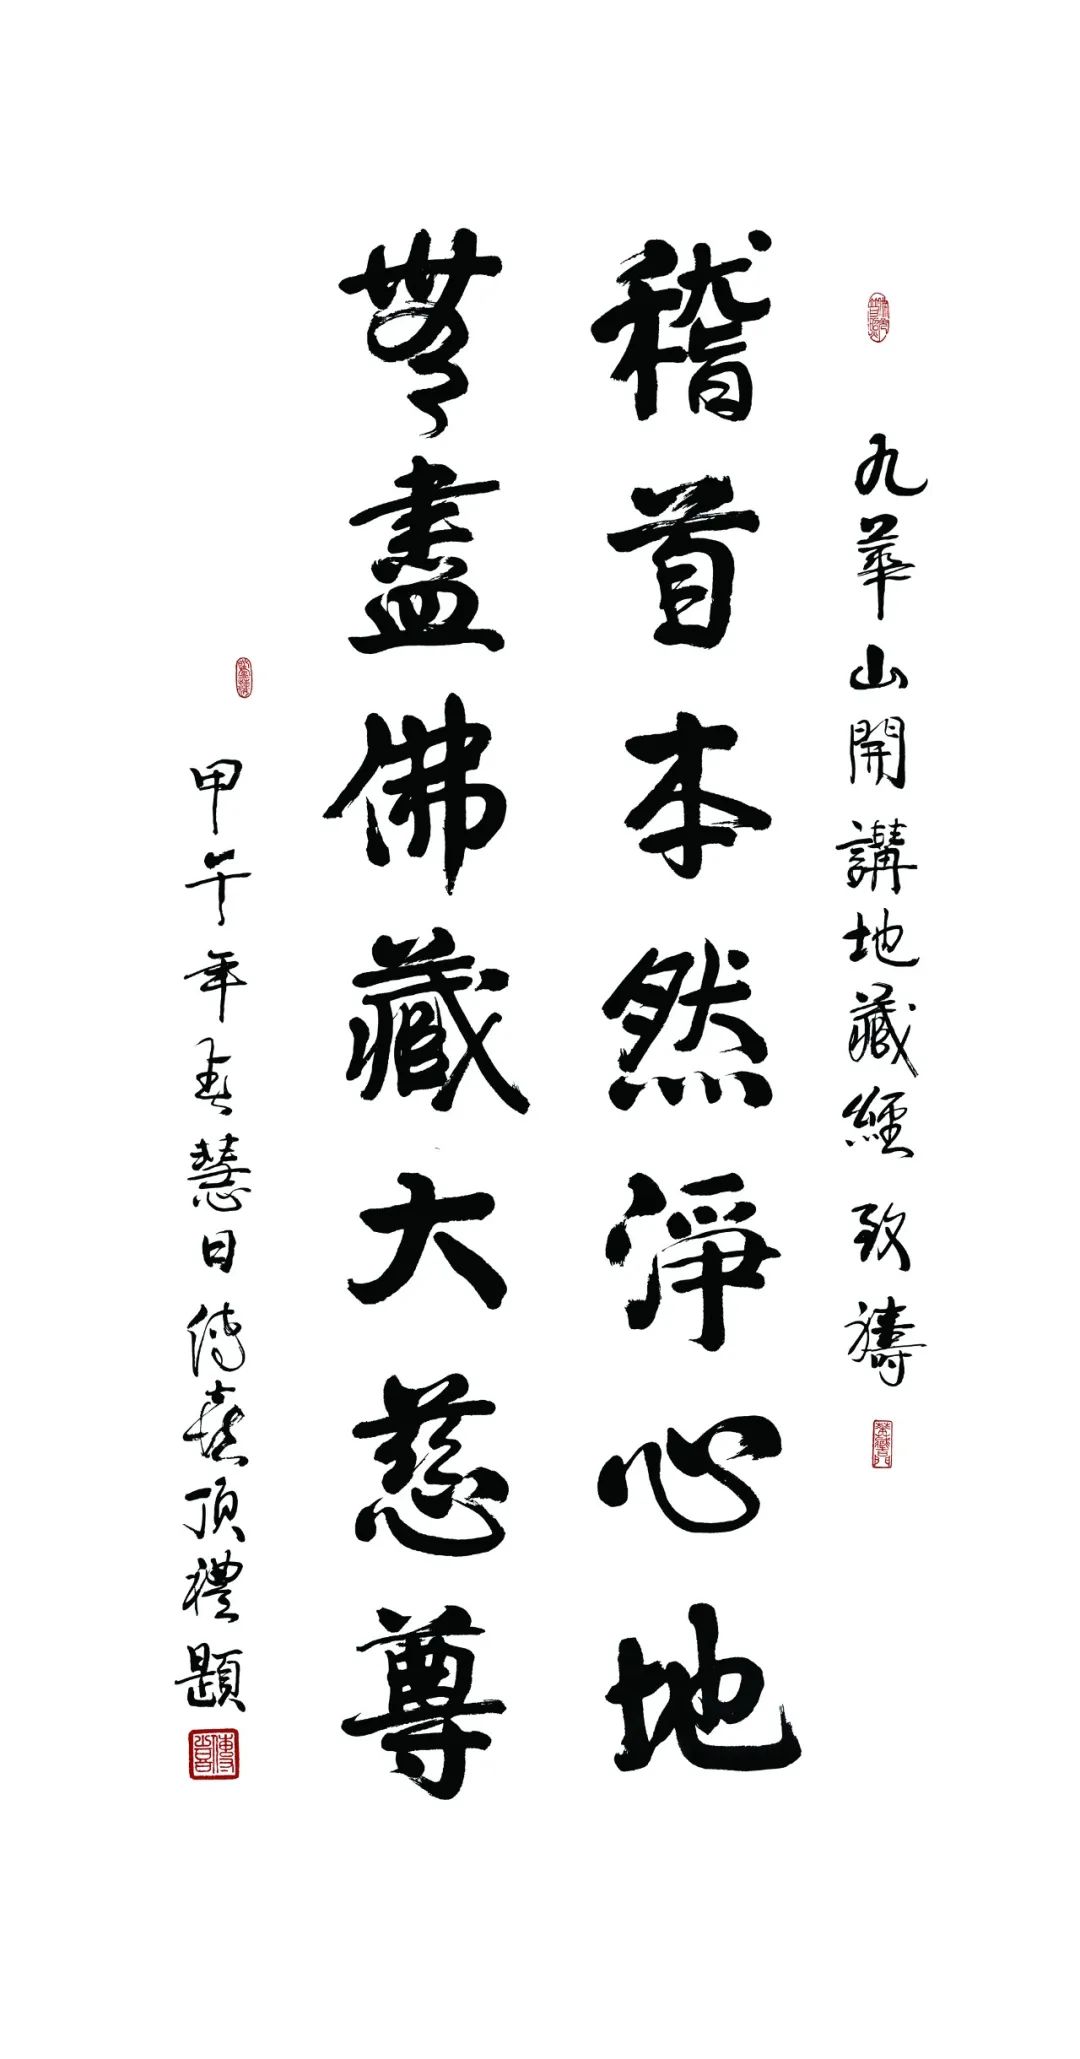 九華山開講地藏經致禱
稽首本然淨心地
無盡佛藏大慈尊
甲午年春慧日傳喜頂禮題